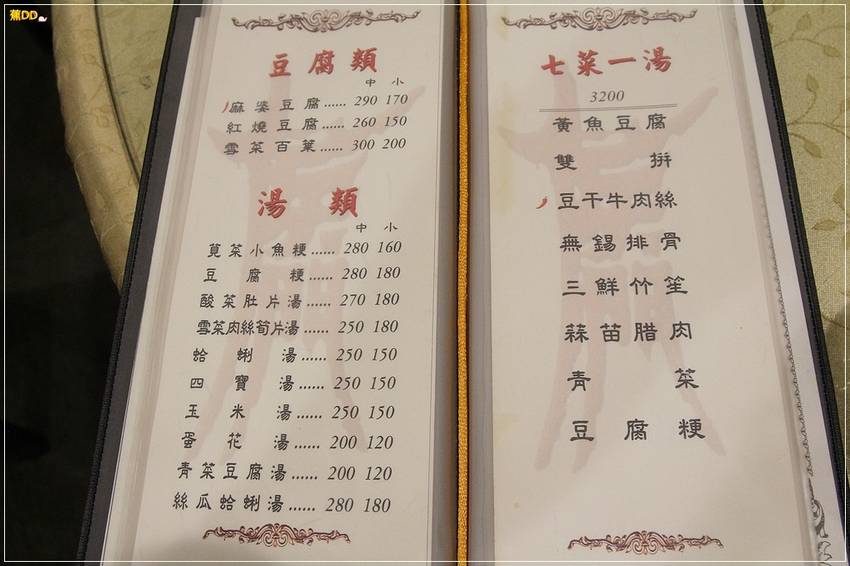 蕉DD
豆腐類
中 小
麻婆豆腐...... 290 170
紅燒豆腐...... 260 150
雪菜百葉...... 300 200
湯類
中 小
莧菜小魚粳...... 280 160
豆腐粳...... 280 180
酸菜肚片湯...... 270 180
雪菜肉絲筍片湯...... 250 180
蛤蜊湯...... 250 150
四寶湯...... 250 150
玉米湯...... 250 150
蛋花湯...... 200 120
青菜豆腐湯...... 200 120
絲瓜蛤蜊湯...... 280 180
七菜一湯
3200
黃魚豆腐
雙拼
豆干牛肉絲
無錫排骨
三鮮竹笙
蒜苗腊肉
青菜
豆腐粳